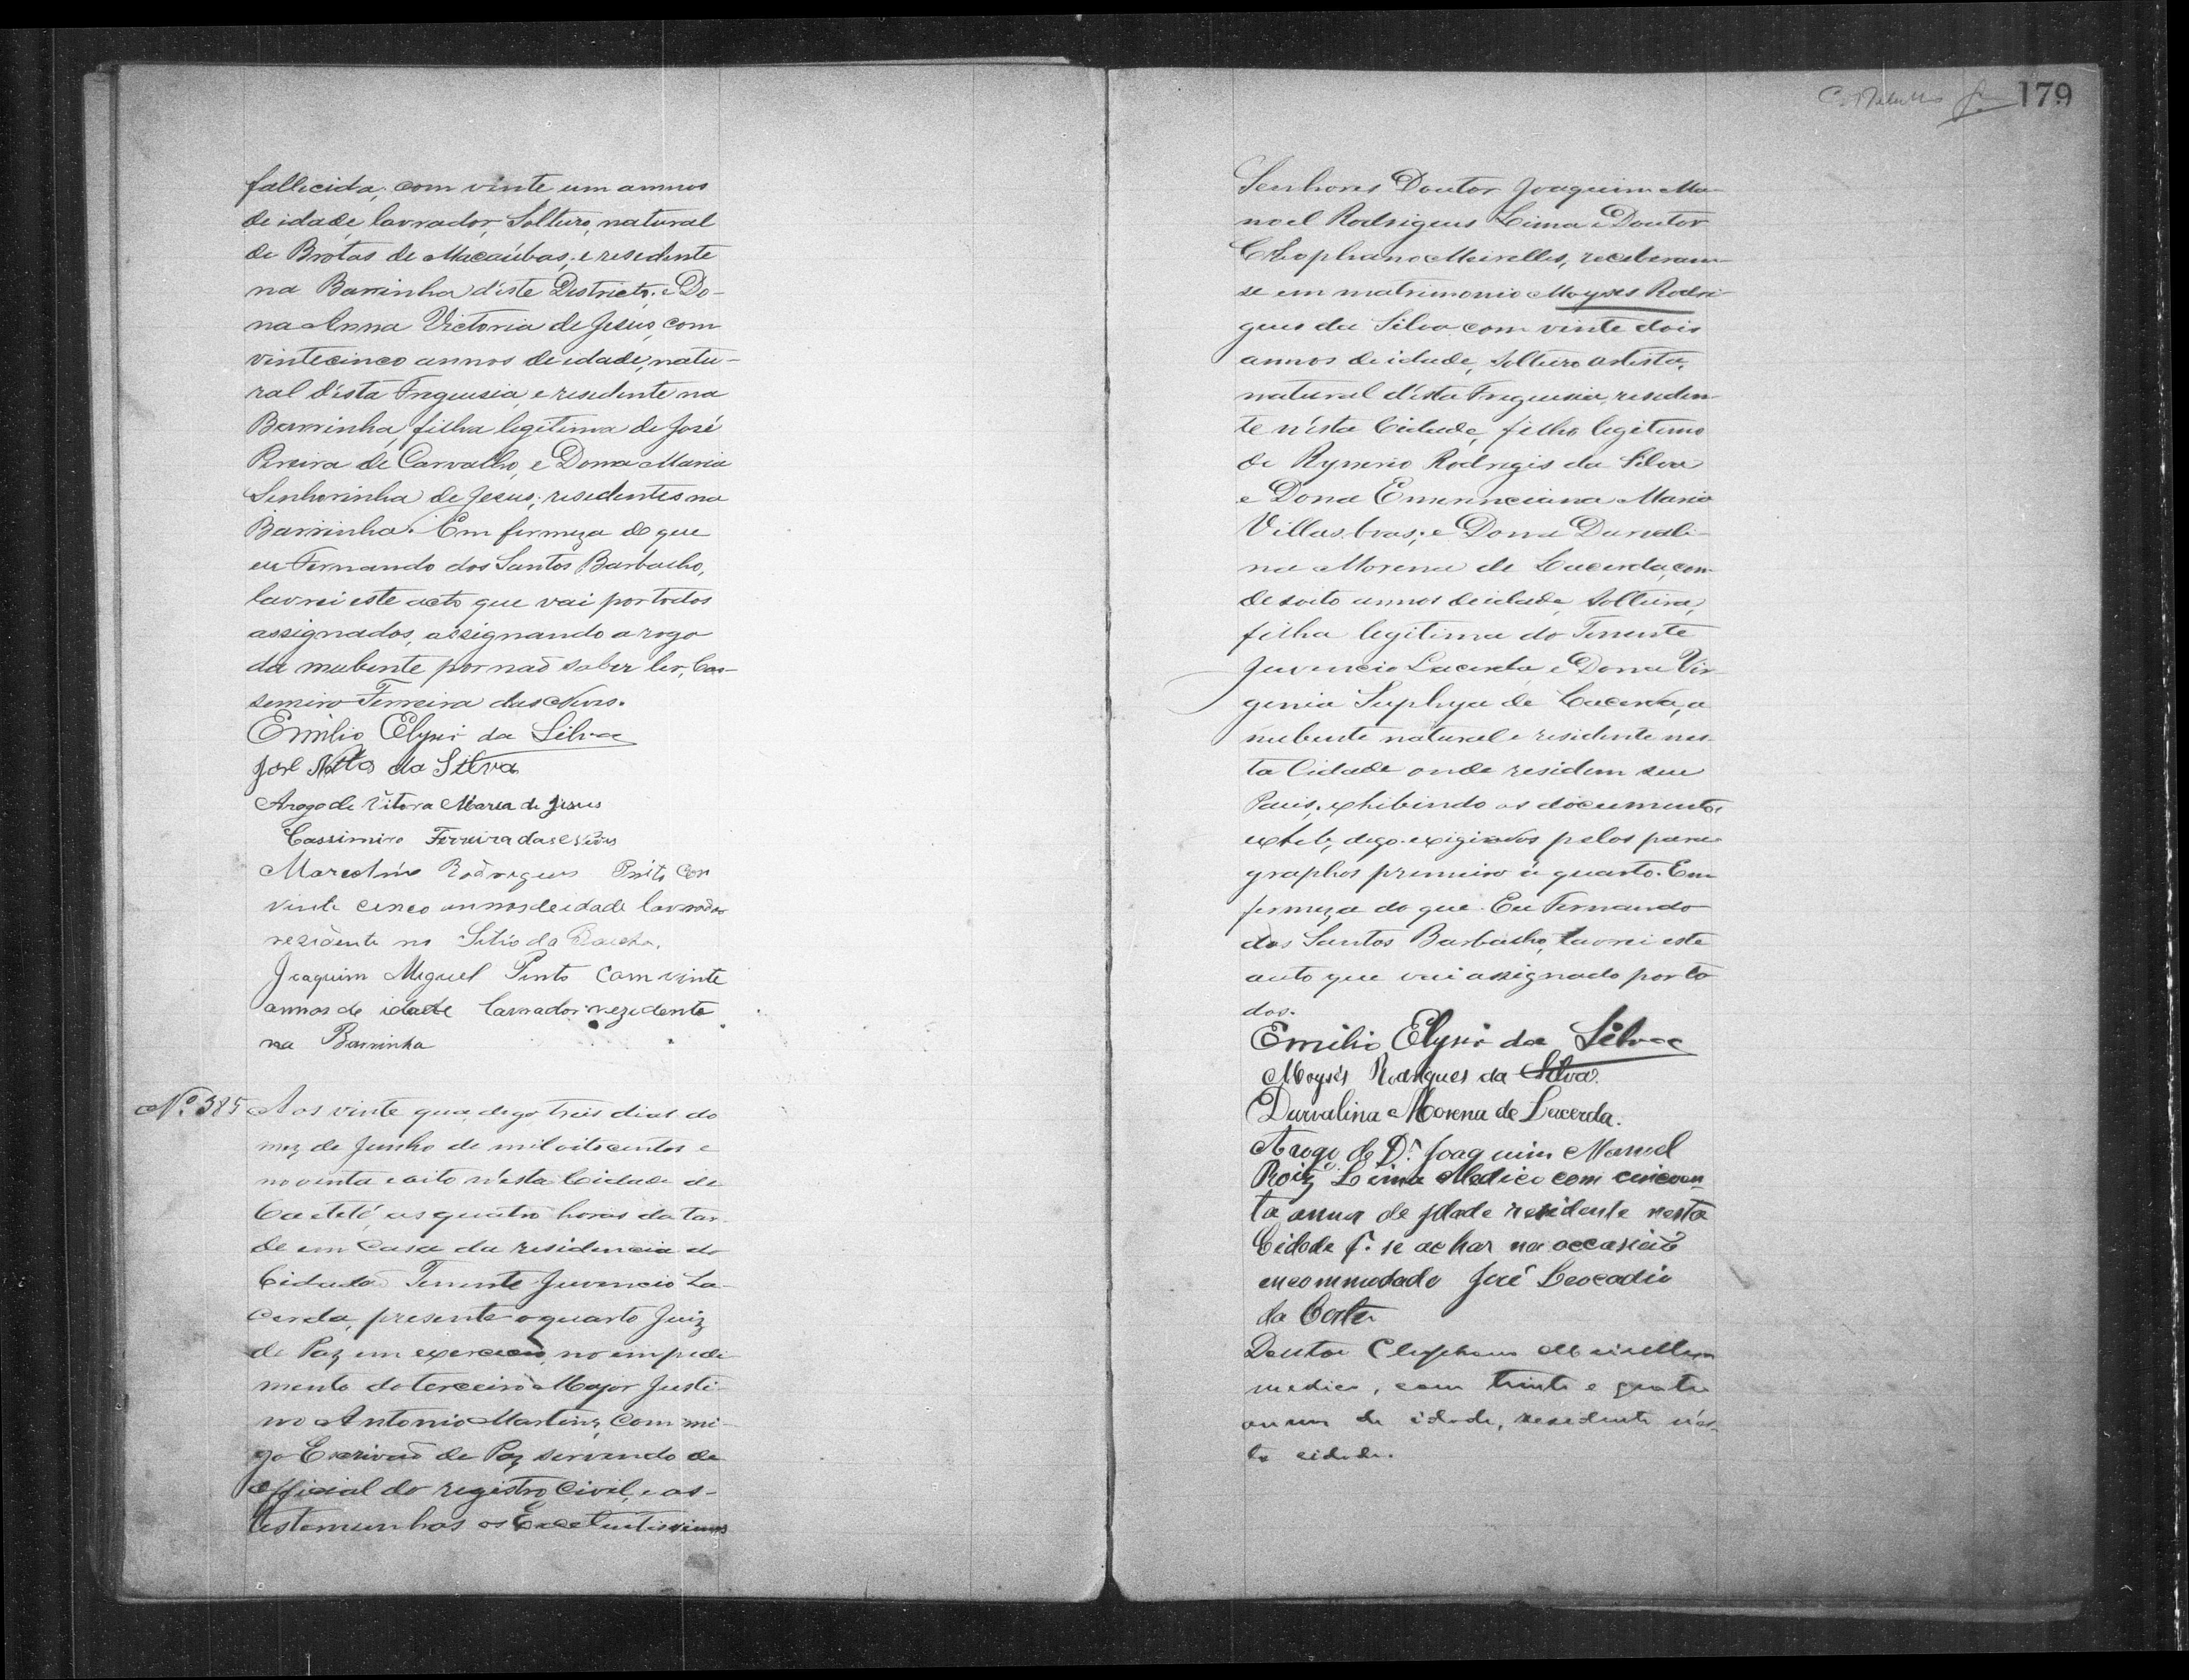 fallecida, com vinte um annos
de idade, lavrador, Solteiro, natural
de Brotas de Macaúbas, e residente
na Barrinha d'este Districto. e Do-
na Anna Victoria de Jesus, com
vintecinco annos de idade, natu-
ral d'esta Freguesia e residente na
Barrinha, filha legitima de José
Pereira de Carvalho, e Dona Maria
Senhorinha de Jesus, residentes na
Barrinha. Em firmeza do que
eu Fernando dos Santos Barbacho,
lavrei este acto que vai por todos
assignados, assignando a rogo
da nubente por naõ saber ler, Cas-
semiro Ferreira das Neves.
Emilio Elysio da Silva
José da Silva
Arogo de Vitora Maria de Jesus
Cassimiro Ferreira das Neves
Rodrigues Pinto Com
vinte cinco annos de idade lavrador
rezidente no Sitio da
Joaquim Miguel Pinto Com vinte
annos de idade lavrador rezidente
na Barrinha
Nº 385 Aos vinte qua, digo, treis dias do
mez de Junho de mil oitocentos e
noventa e oito n'esta Cidade de
Caeteté, as quatro horas da tar-
de em Casa da residencia do
Cidadaõ Tenente Juvencio La-
cerda, presente o quarto Juiz
de Paz em exercicio, no impedi-
mento do terceiro Major Justi-
no Antonio Martins, com mi-
go Escrivaõ de Paz servindo de
official do registro Civil, e as
testemunhas os Excelentissimos
179
Senhores Doutor Joaquim Ma-
noel Rodrigues Lima e Doutor
Cleophano Meirelles, receberam-
se em matrimonio Moyses Rodri-
gues da Silva com vinte dois
annos de idade, solteiro artista,
natural d'esta Freguesia, residen-
te n'esta Cidade, filho legitimo
de Rodrigis da Silva
e Dona Emerenciana Maria
Villasboas; e Dona Durvali-
na Morena de Lacerda, com
desoito annos de idade, solteira,
filha legitima do Tenente
Juvencio Lacerda e Dona Vir-
ginia de Lacerda, a
nubente natural e residente nes-
ta Cidade onde residem seus
Pais, exhibindo os documentos
exhib, digo. exigidos pelos para-
graphos primeiro á quarto. Em
firmeza do que Eu Fernando
dos Santos Barbacho, lavrei este
auto que vai assignado por to
dos.
Emilio Elysio da Silva
Moysés Rodrigues da Silva.
Durvalina Morena de Lacerda.
Arogo do Dr. Joaquim Manoel
Roiz Lima Medico com cincoen-
ta annos de idade residente nesta
Cidade p. se achar na occasiaõ
encommodado José Leocadio
da Costa
Doutor Cleophano Meirelles
medico, com trinta e quatro
annos de idade, residente n'es-
ta cidade.